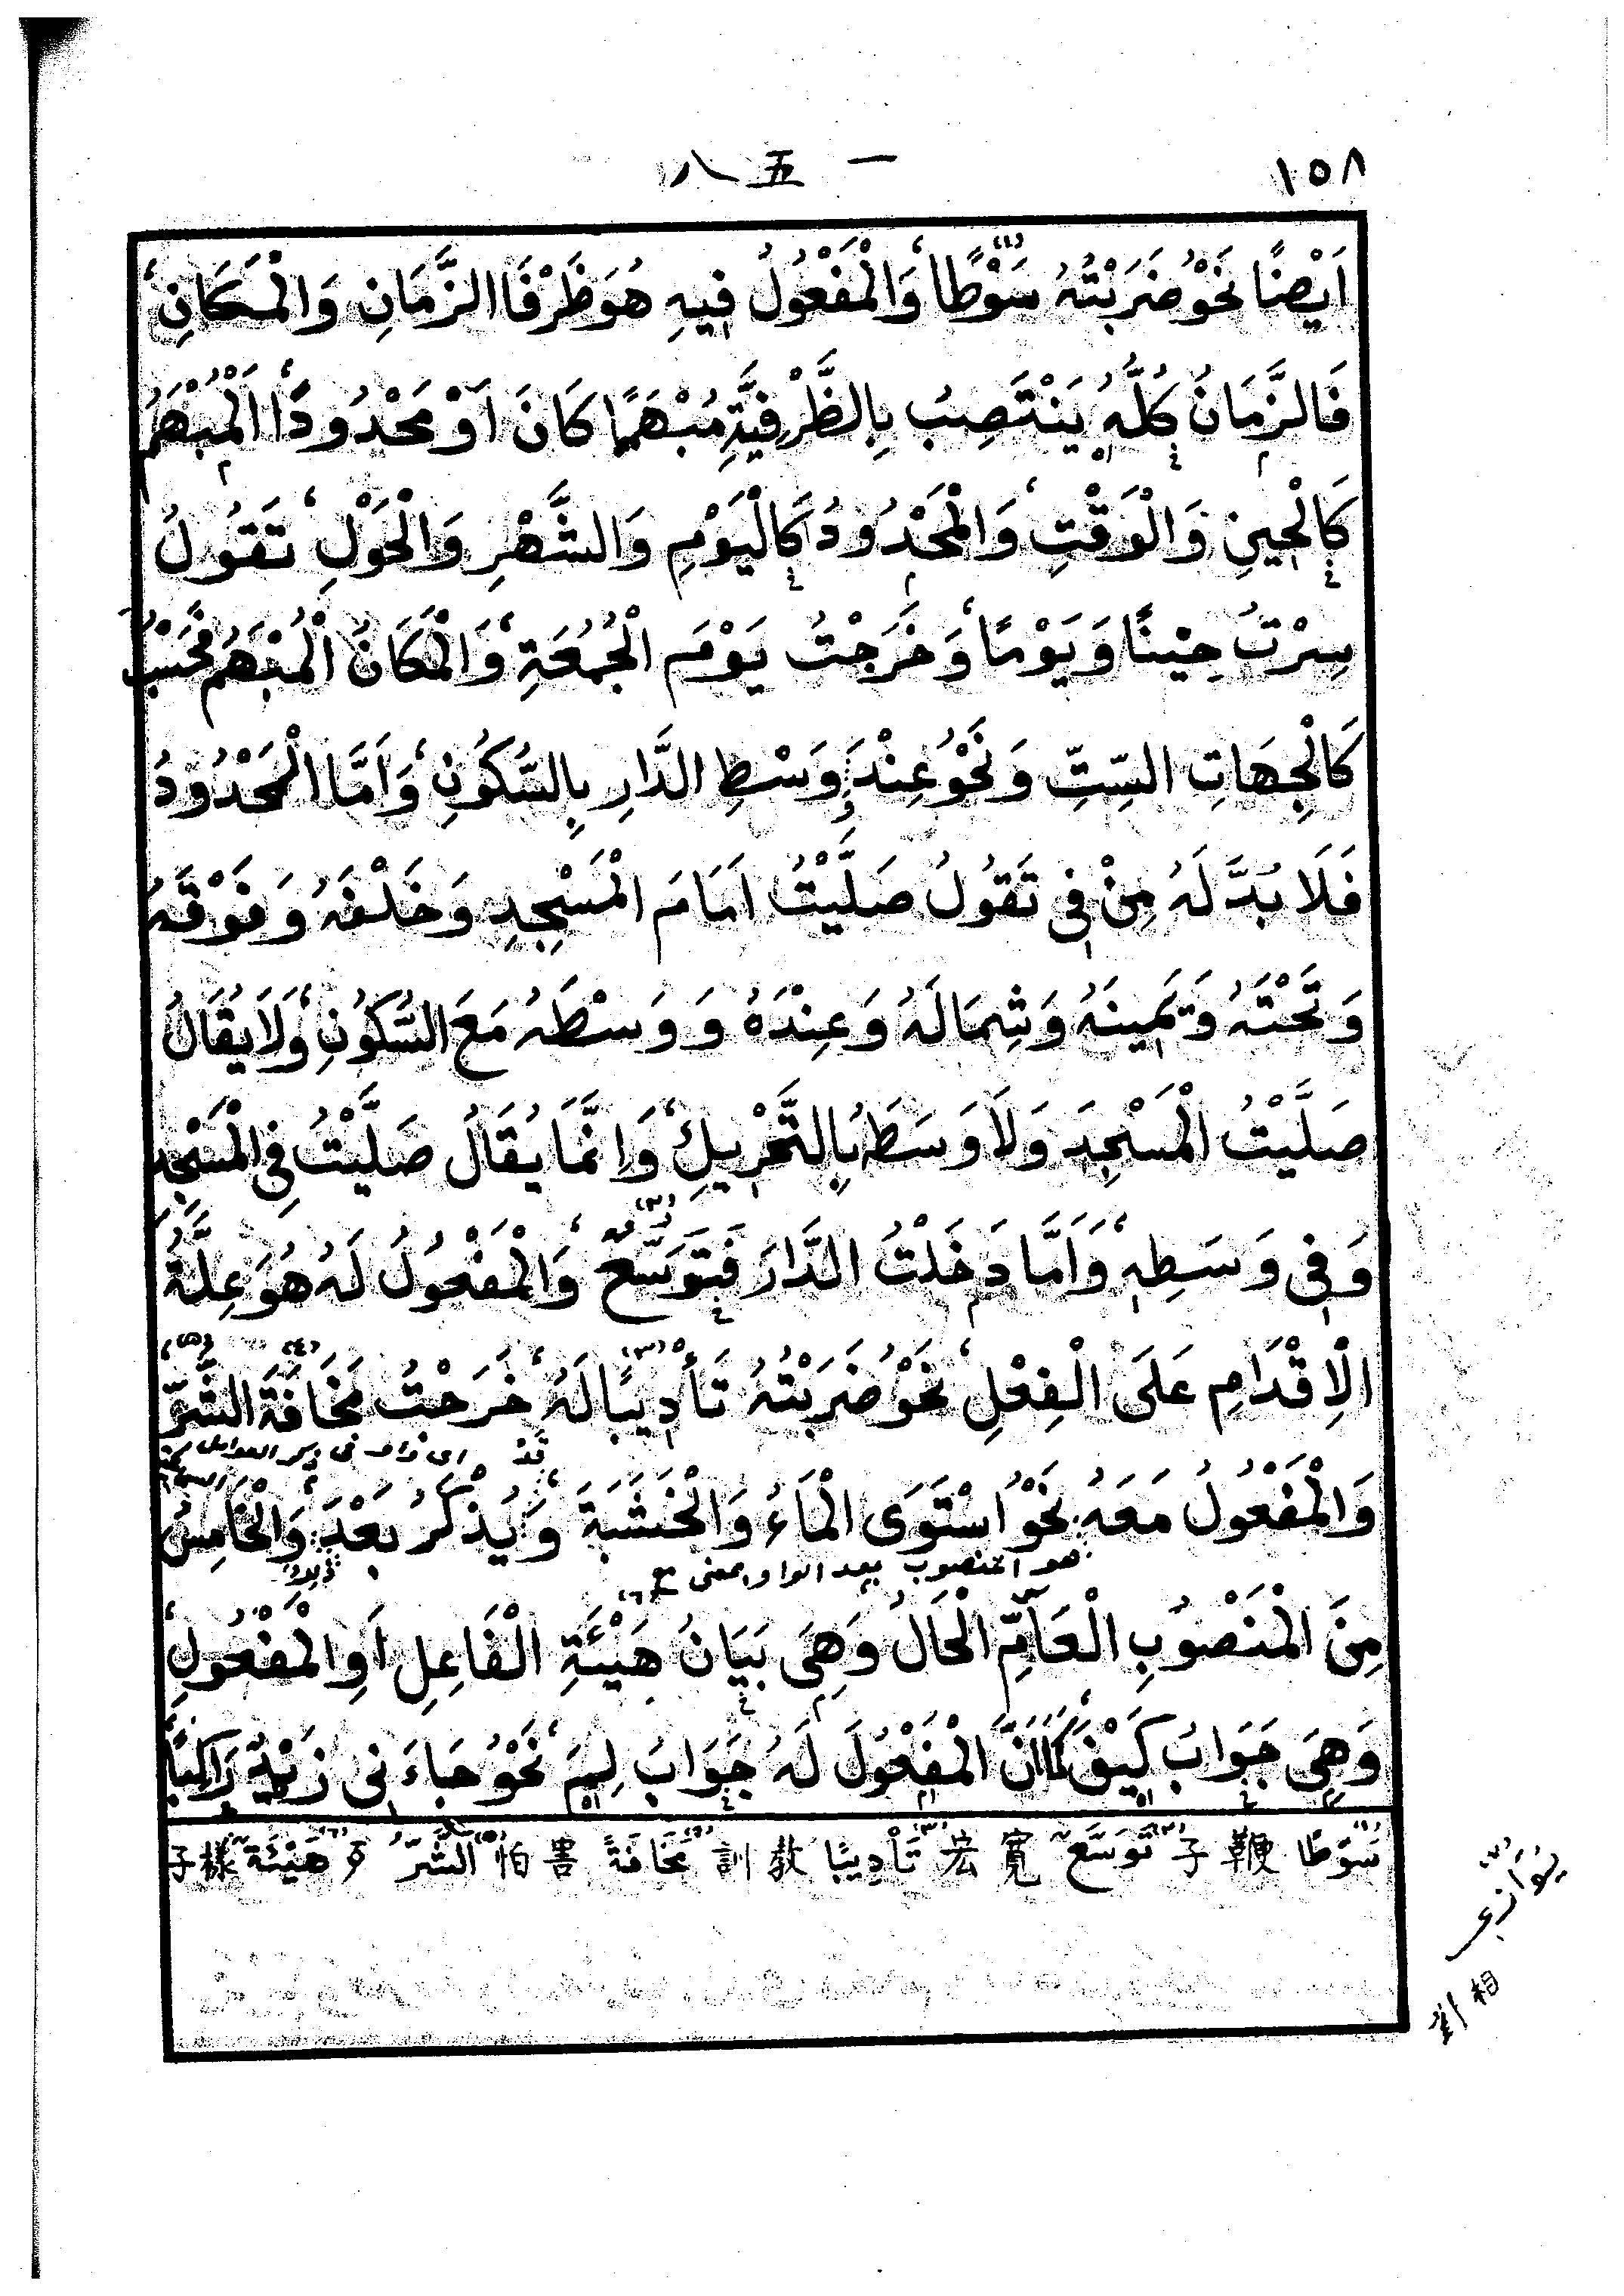 ١٥٨
一 五 八
اَيْضًا نَحْوُ ضَرَبْتُهُ سَوْطًا، وَالْمَفْعُولُ فِيهِ هُوَ ظَرْفَا الزَّمَانِ وَالْمَكَانِ،
فَالزَّمَانُ كُلُّهُ يَنْتَصِبُ بِالظَّرْفِيَّةِ مُبْهَمًا كَانَ اَوْ مَحْدُودًا، اَلْمُبْهَمُ
كَالْحِينِ وَالْوَقْتِ، وَالْمَحْدُودُ كَالْيَوْمِ وَالشَّهْرِ وَالْحَوْلِ، تَقُولُ
سِرْتُ حِيْنًا وَيَوْمًا، وَخَرَجْتُ يَوْمَ الْجُمُعَةِ، وَالْمَكَانُ الْمُبْهَمُ فَحَسْبُ
كَالْجِهَاتِ السِّتِّ وَنَحْوُ عِنْدَ وَوَسْطِ الدَّارِ بِالسُّكُونِ، وَاَمَّا الْمَحْدُودُ
فَلَا بُدَّ لَهُ مِنْ فِي تَقُولُ صَلَّيْتُ اَمَامَ الْمَسْجِدِ وَخَلْفَهُ وَفَوْقَهُ
وَتَحْتَهُ وَيَمِينَهُ وَشِمَالَهُ وَعِنْدَهُ وَوَسْطَهُ مَعَ السُّكُونِ، وَلَا يُقَالُ
صَلَّيْتُ الْمَسْجِدَ وَلَا وَسَطَهُ بِالتَّحْرِيكِ، وَاِنَّمَا يُقَالُ صَلَّيْتُ فِي الْمَسْجِدِ
وَفِي وَسَطِهِ، وَاَمَّا دَخَلْتُ الدَّارَ فَتَوَسَّعٌ، وَالْمَفْعُولُ لَهُ هُوَ عِلَّةُ
الْاِقْدَامِ عَلَى الْفِعْلِ، نَحْوُ ضَرَبْتُهُ تَأْدِيْبًا لَهُ، خَرَجْتُ مَخَافَةَ الشَّرِّ
وَالْمَفْعُولُ مَعَهُ نَحْوُ اسْتَوَى الْمَاءُ وَالْخَشَبَةَ، وَيُذْكَرُ بَعْدَ، وَالْخَامِسُ
هو المنصوب بعد الواو بمعنى مع
مِنَ الْمَنْصُوبِ الْعَامِّ الْحَالُ وَهِيَ بَيَانُ هَيْئَةِ الْفَاعِلِ اَوِ الْمَفْعُولِ،
وَهِيَ جَوَابُ كَيْفَ كَمَا اَنَّ الْمَفْعُولَ لَهُ جَوَابُ لِمَ، نَحْوُ جَاءَنِي زَيْدٌ رَاكِبًا
سَوْطًا 鞭子 تَوَسَّعٌ 寬宏 تَأْدِيبًا 教訓 مَخَافَةً 害怕 اَلشَّرُّ 歹 هَيْئَةٌ 樣子